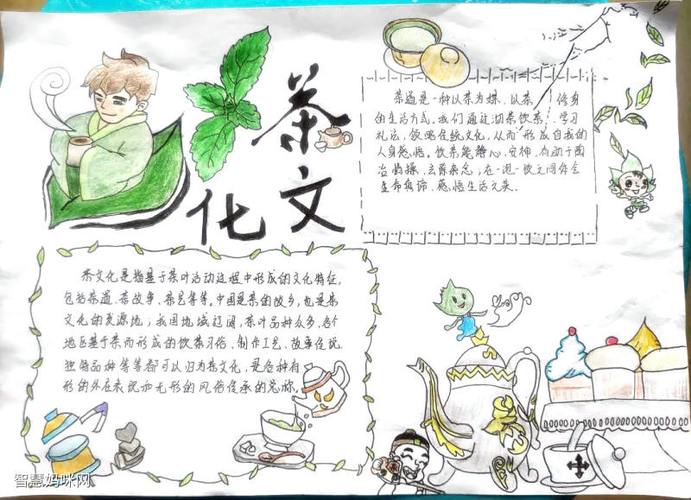 茶文化
茶道是一种以茶为媒、以茶修身
的生活方式。我们通过沏茶饮茶,学习
礼法,领略传统文化,从而形成自我的
人身感悟。饮茶能静心、安神,有助于陶
冶情操、去除杂念;在一泡一饮之间体会
生命真谛,感悟生活之美。
茶文化是指基于茶叶活动过程中形成的文化特征,
包括茶道、茶故事、茶艺等等。中国是茶的故乡,也是茶
文化的发源地;我国地域辽阔,茶叶品种众多,各个
地区基于茶而形成的饮茶习俗、制作工艺、故事传说、
独特品种等等都可以归为茶文化,是各种有
形的外在表现和无形的风俗传承的总称。
智慧妈咪网